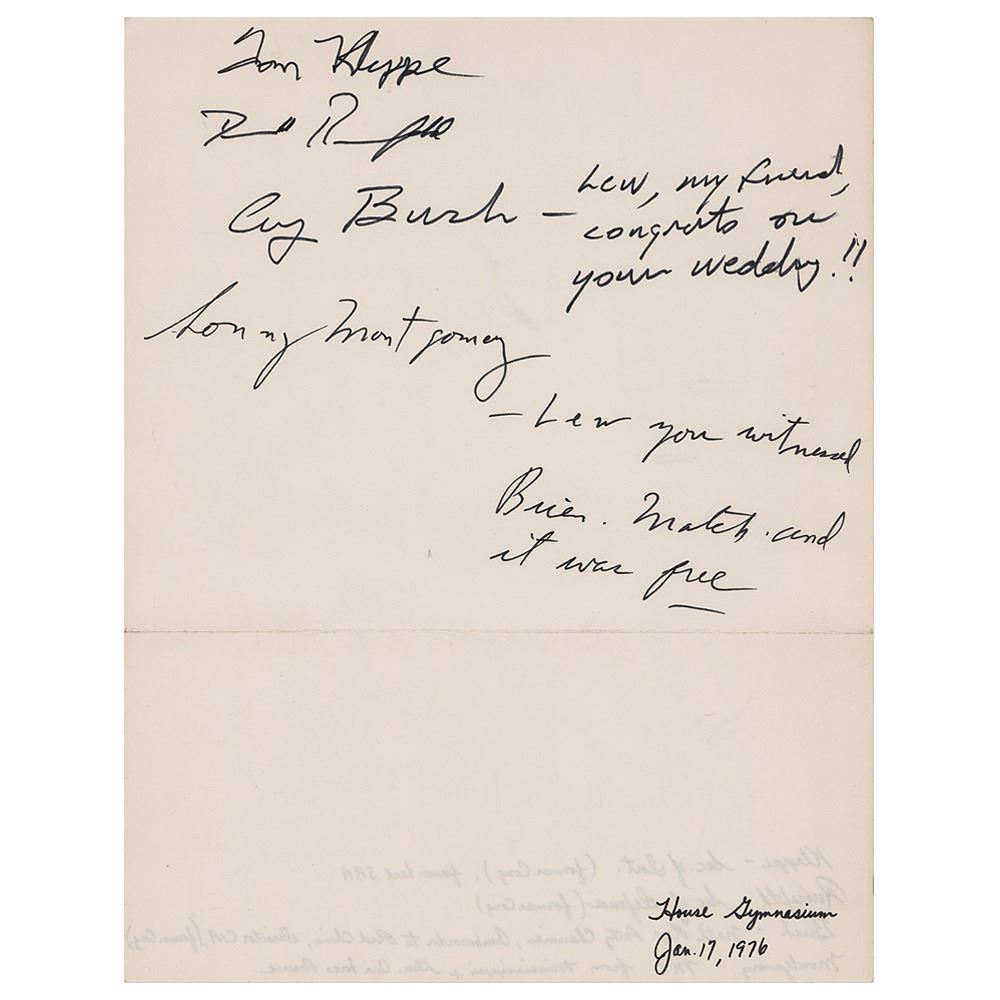 Tom Kleppe
Bush – Lew, my friend,
congrats on
your wedding.!!
Sonny Montgomery
– Lew you witnessed
Bicen. Match. and
it was free
House Gymnasium
Jan. 17, 1976